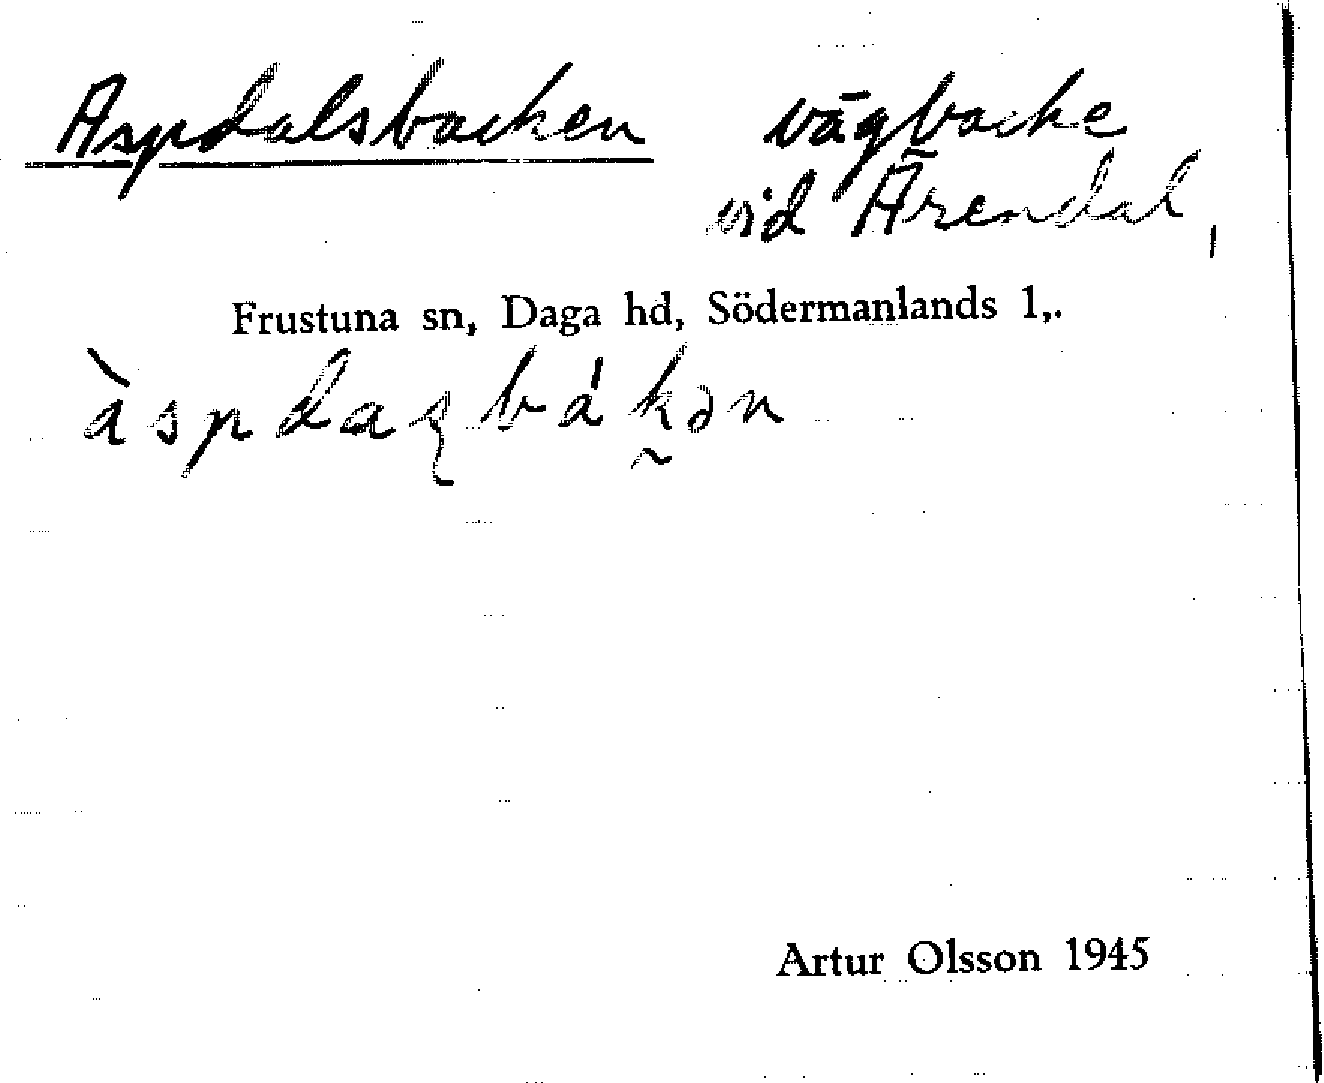 Aspdalsbacken vägbacke
vid Ärendal,
Frustuna sn, Daga hd, Södermanlands l,.
àspdaʂbákən
Artur Olsson 1945